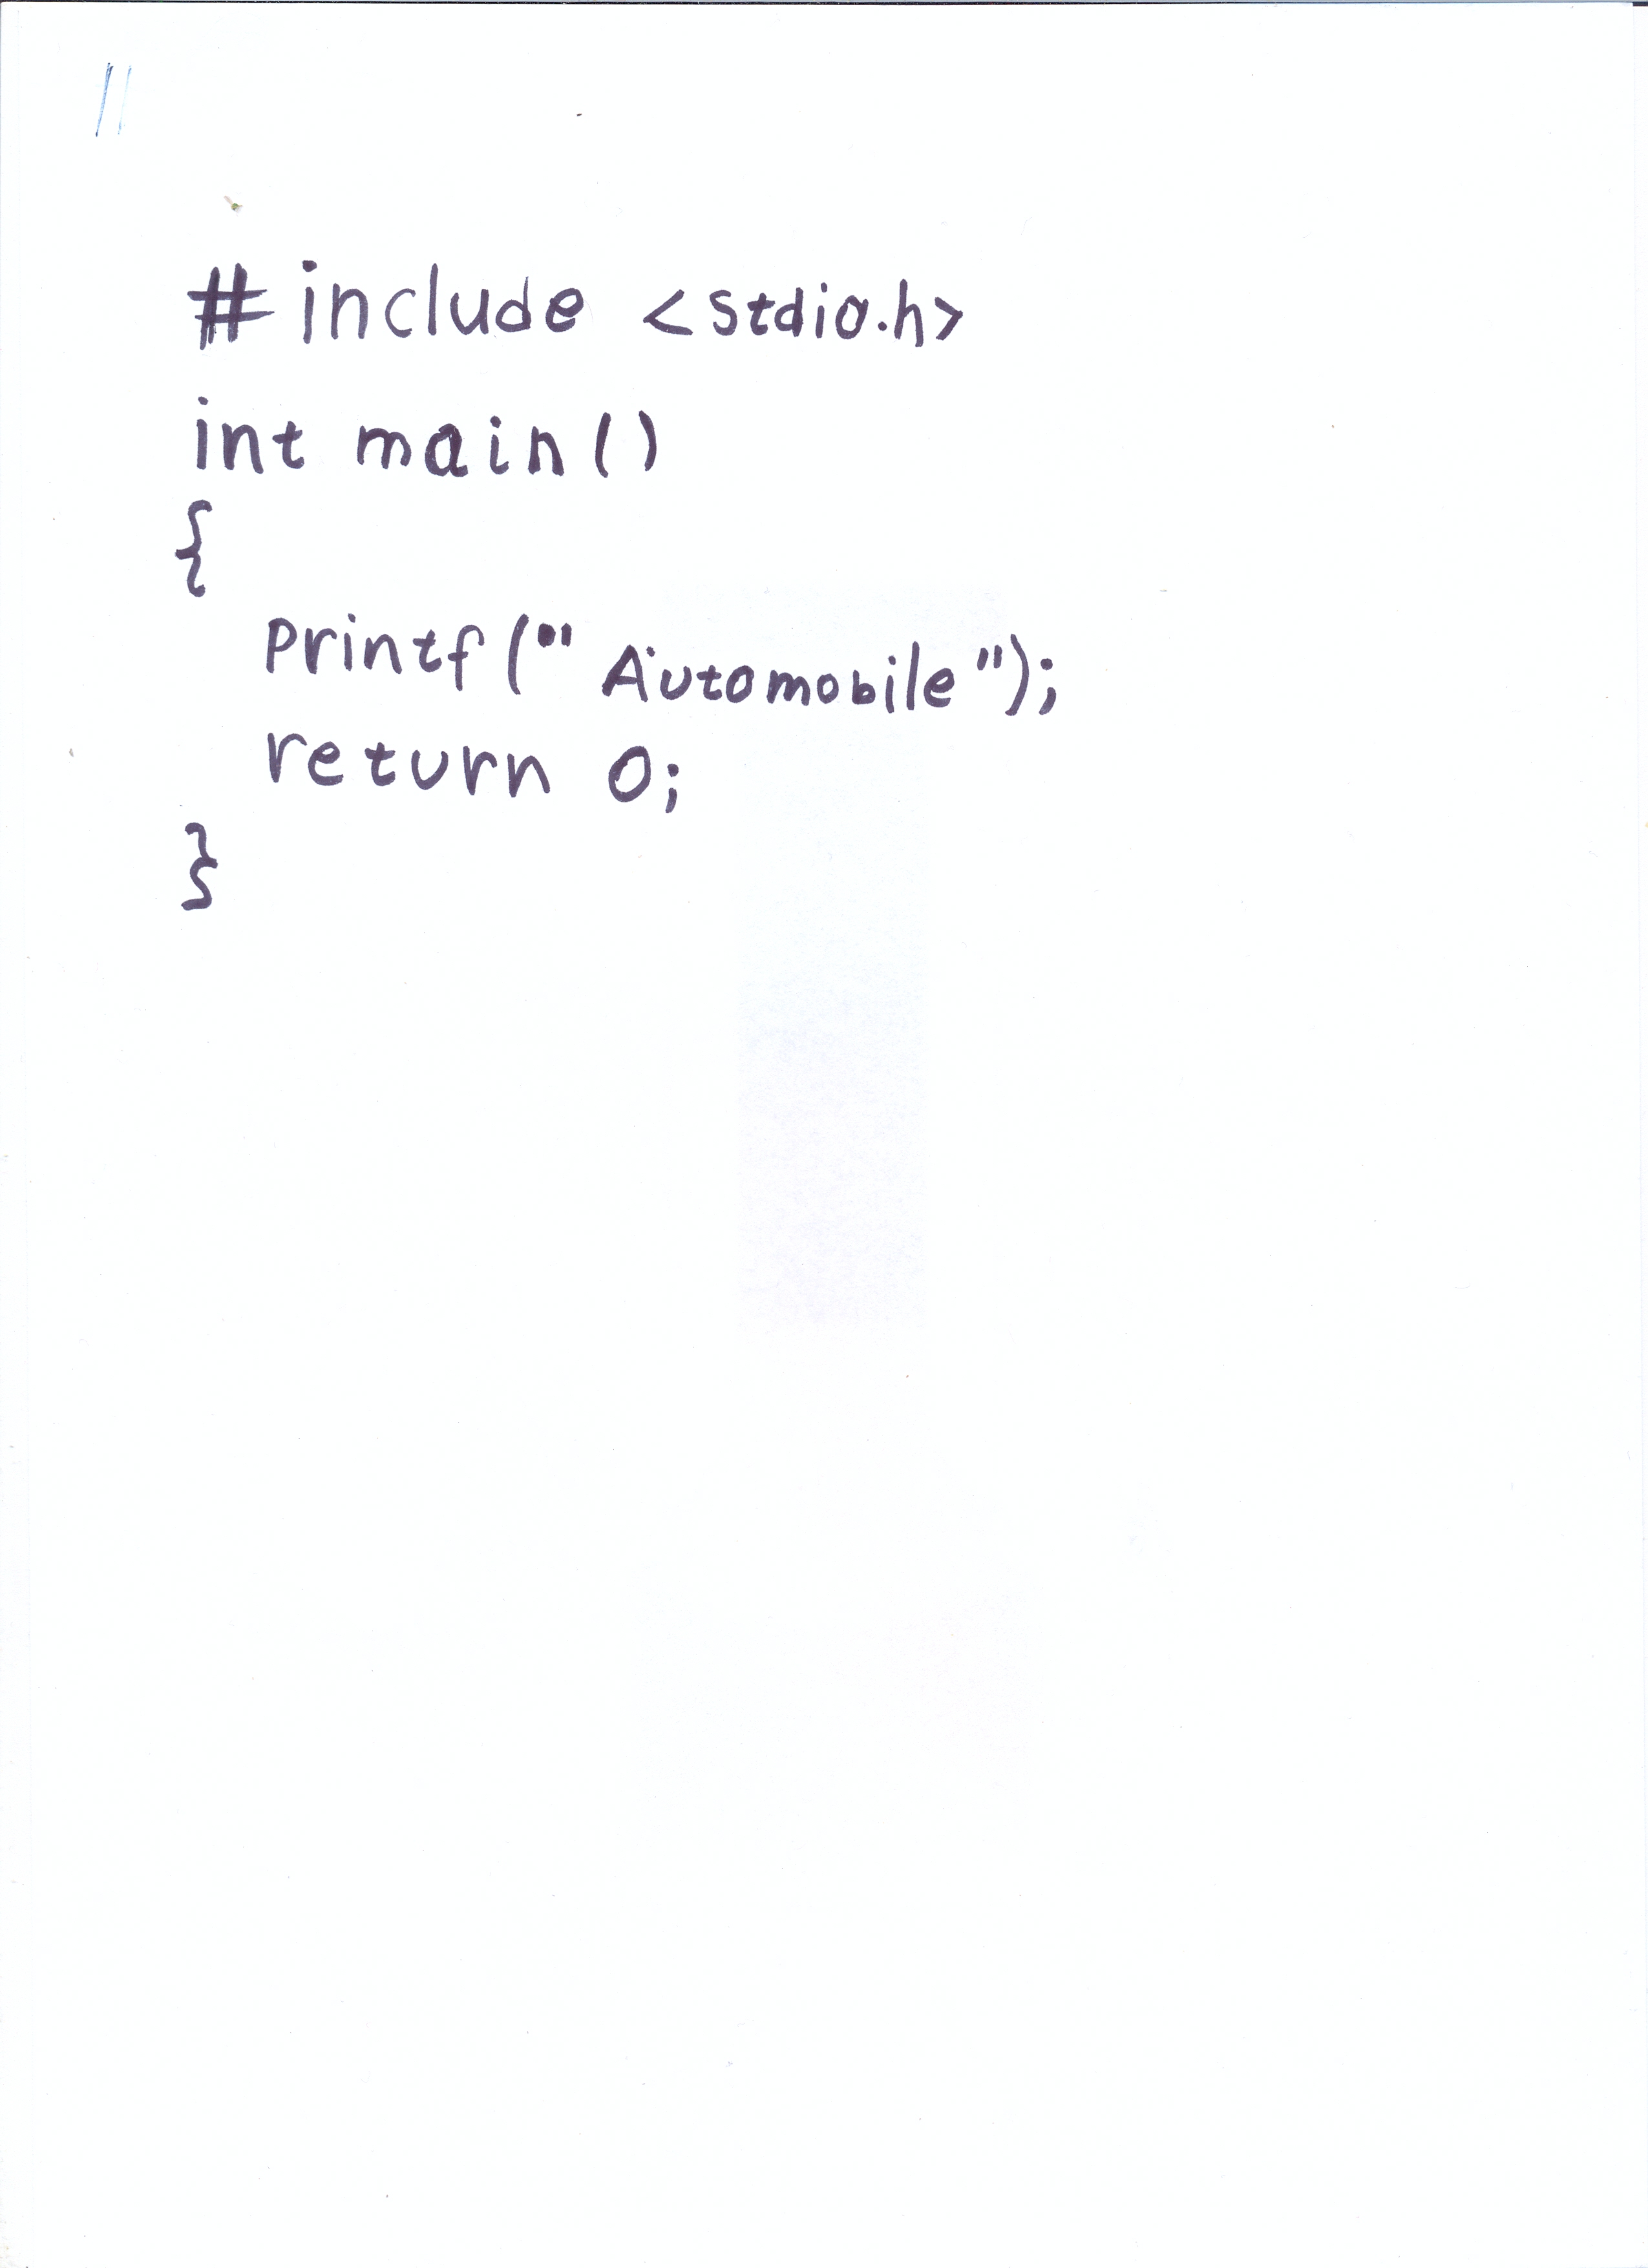 11
# include <stdio.h>
int main()
{
printf(" Automobile");
return 0;
}